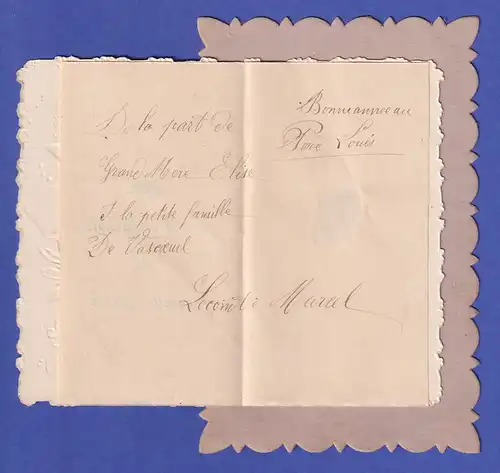 Bonneannee au
Père Louis
De la part de
Grand Mère Elise
& la petite famille
De Vascœuil
Lecomte Marcel